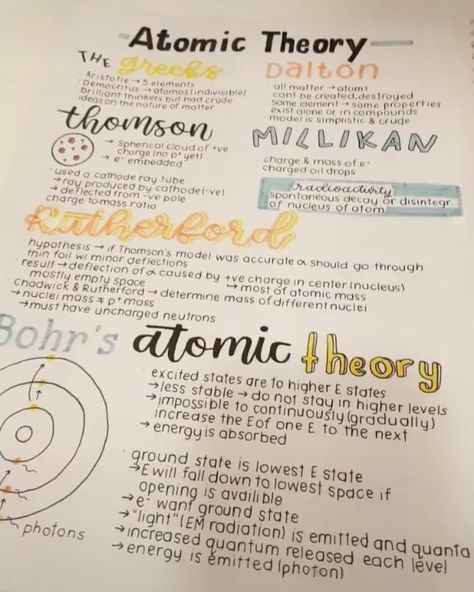 Atomic Theory
THE Greeks
Aristotle → 5 elements
Democritus → atomos (indivisible)
brilliant thinkers but had crude
ideas on the nature of matter
Dalton
all matter → atoms
cant be created, destroyed
same element → same properties
exist alone or in compounds
model is simplistic & crude
thomson
→ Spherical cloud of +ve
charge (no p+ yet)
→ e⁻ embedded
· used a cathode ray tube
→ ray produced by cathode (-ve)
→ deflected from -ve pole
charge-to-mass ratio
MILLIKAN
· charge & mass of e⁻
charged oil drops
radioactivity
spontaneous decay or disintegr.
of nucleus of atom
Rutherford
· hypothesis → if Thomson's model was accurate α should go through
thin foil w/ minor deflections
· result → deflection of α caused by +ve charge in center (nucleus)
mostly empty space → most of atomic mass
· Chadwick & Rutherford → determine mass of different nuclei
→ nuclei mass ≠ p+ mass
→ must have uncharged neutrons
Bohr's atomic theory
· excited states are to higher E states
→ less stable → do not stay in higher levels
→ impossible to continuously (gradually)
increase the E of one E to the next
→ energy is absorbed
· ground state is lowest E state
→ E will fall down to lowest space if
opening is availible
→ e⁻ want ground state
→ "light" (EM radiation) is emitted and quanta
→ increased quantum released each level
→ energy is emitted (photon)
photons